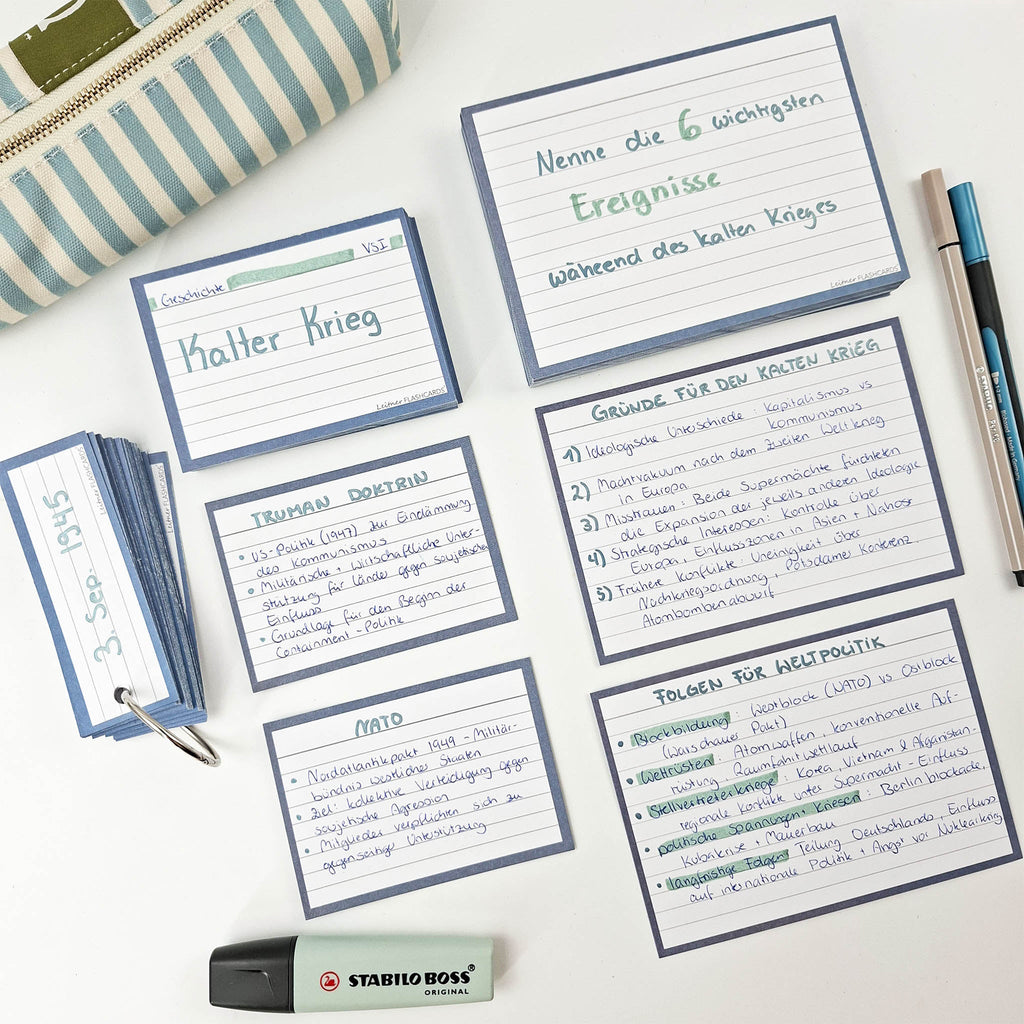 Nenne die 6 wichtigsten
Ereignisse
wäheend des kalten Krieges
Leitner FLASHCARDS
Geschichte VSI
Kalter Krieg
Leitner FLASHCARDS
3. Sep. 1945
Leitner FLASHCARDS
Leitner FLASHCARDS
TRUMAN DOKTRIN
• US-Politik (1947) zur Eindämmung
des Kommunismus
• Militärische + Wirtschaftliche Unter-
stützung für Länder gegen sowjetischen
Einfluss
• Grundlage für den Beginn der
Containment-Politik
NATO
• Nordatlantikpakt 1949 - Militär-
bündnis westlicher Staaten
• Ziel: kollektive Verteidigung gegen
sowjetische Agression
• Mitglieder verpflichten sich zu
gegenseitige Unterstützung
GRÜNDE FÜR DEN KALTEN KRIEG
1) Ideologische Unterschiede: Kapitalismus vs
Kommunismus
2) Machtvakuum nach dem zweiten Weltkrieg
in Europa
3) Misstrauen: Beide Supermächte fürchteten
die Expansion der jeweils anderen Ideologie
4) Strategische Interessen: Kontrolle über
Europa, Einflusszonen in Asien + Nahost
5) Frühere Konflikte: Uneinigkeit über
Nachkriegsordnung, Potsdamer Konferenz,
Atombombenabwurf
FOLGEN FÜR WELTPOLITIK
• Blockbildung: Westblock (NATO) vs Ostblock
(Warschauer Pakt)
• Wettrüsten: Atomwaffen, konventionelle Auf-
rüstung, Raumfahrtwettlauf
• Stellvertreterkriege: Korea, Vietnam & Afganistan-
regionale Konflikte unter Supermacht-Einfluss
• politische Spannungen + Kriesen: Berlin blockade,
Kubakrise + Mauerbau
• langfristige Folgen: Teilung Deutschlands, Einfluss
auf internationale Politik + Angst vor Nuklearkrieg
STABILO BOSS®
ORIGINAL
STABILO